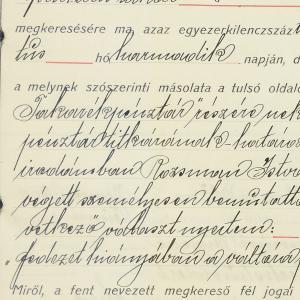 megkeresésére ma, azaz egyezerkilencszáz
tus hó harmadik napján, d
a melynek szószerinti másolata a tulsó oldalo
Takarékpénztár részére nek
pénztár titkárának határi
irodámban Rozsman Istvá
végett személyesen bemutatta
vetkező választ nyertem:
„fedezet hiányjában a váltóra
Miről, a fent nevezett megkereső fél jogai